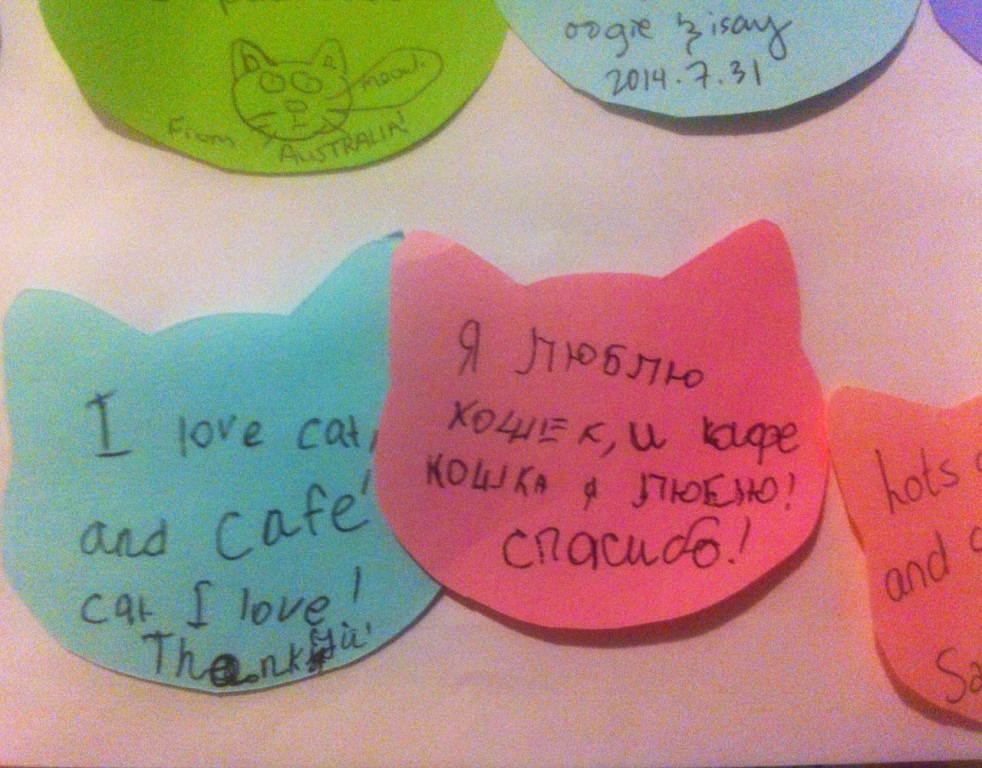 meow.
From AUSTRALIA!
oogie & isay
2014.7.31
I love cat,
and cafe'
cat I love!
Thank
Я люблю
кошек, и кафе
кошка я люблю!
спасибо!
hots
and
Sa